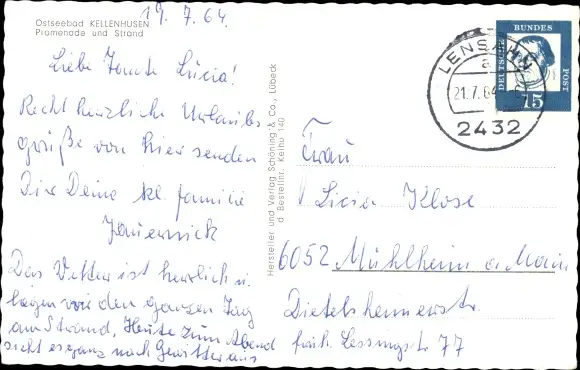 19.7.64.
Ostseebad KELLENHUSEN
Promenade und Strand
Liebe Tante Lucia!
Recht herzliche Urlaubs
grüße von hier senden
Dir Deine kl. Familie
Das Wetter ist herrlich u.
liegen wir den ganzen Tag
am Strand, Heute zum Abend
sieht es ganz nach Gewitter aus
Hersteller und Verlag Schöning & Co., Lübeck
Bestellnr. Kelhu 140
DEUTSCHE BUNDES POST
15
LENSAHN
a
21.7.64
2432
Frau
Licia Klose
6052 Mühlheim a. Main
Dietesheimerstr.
früh. Lessingstr. 77